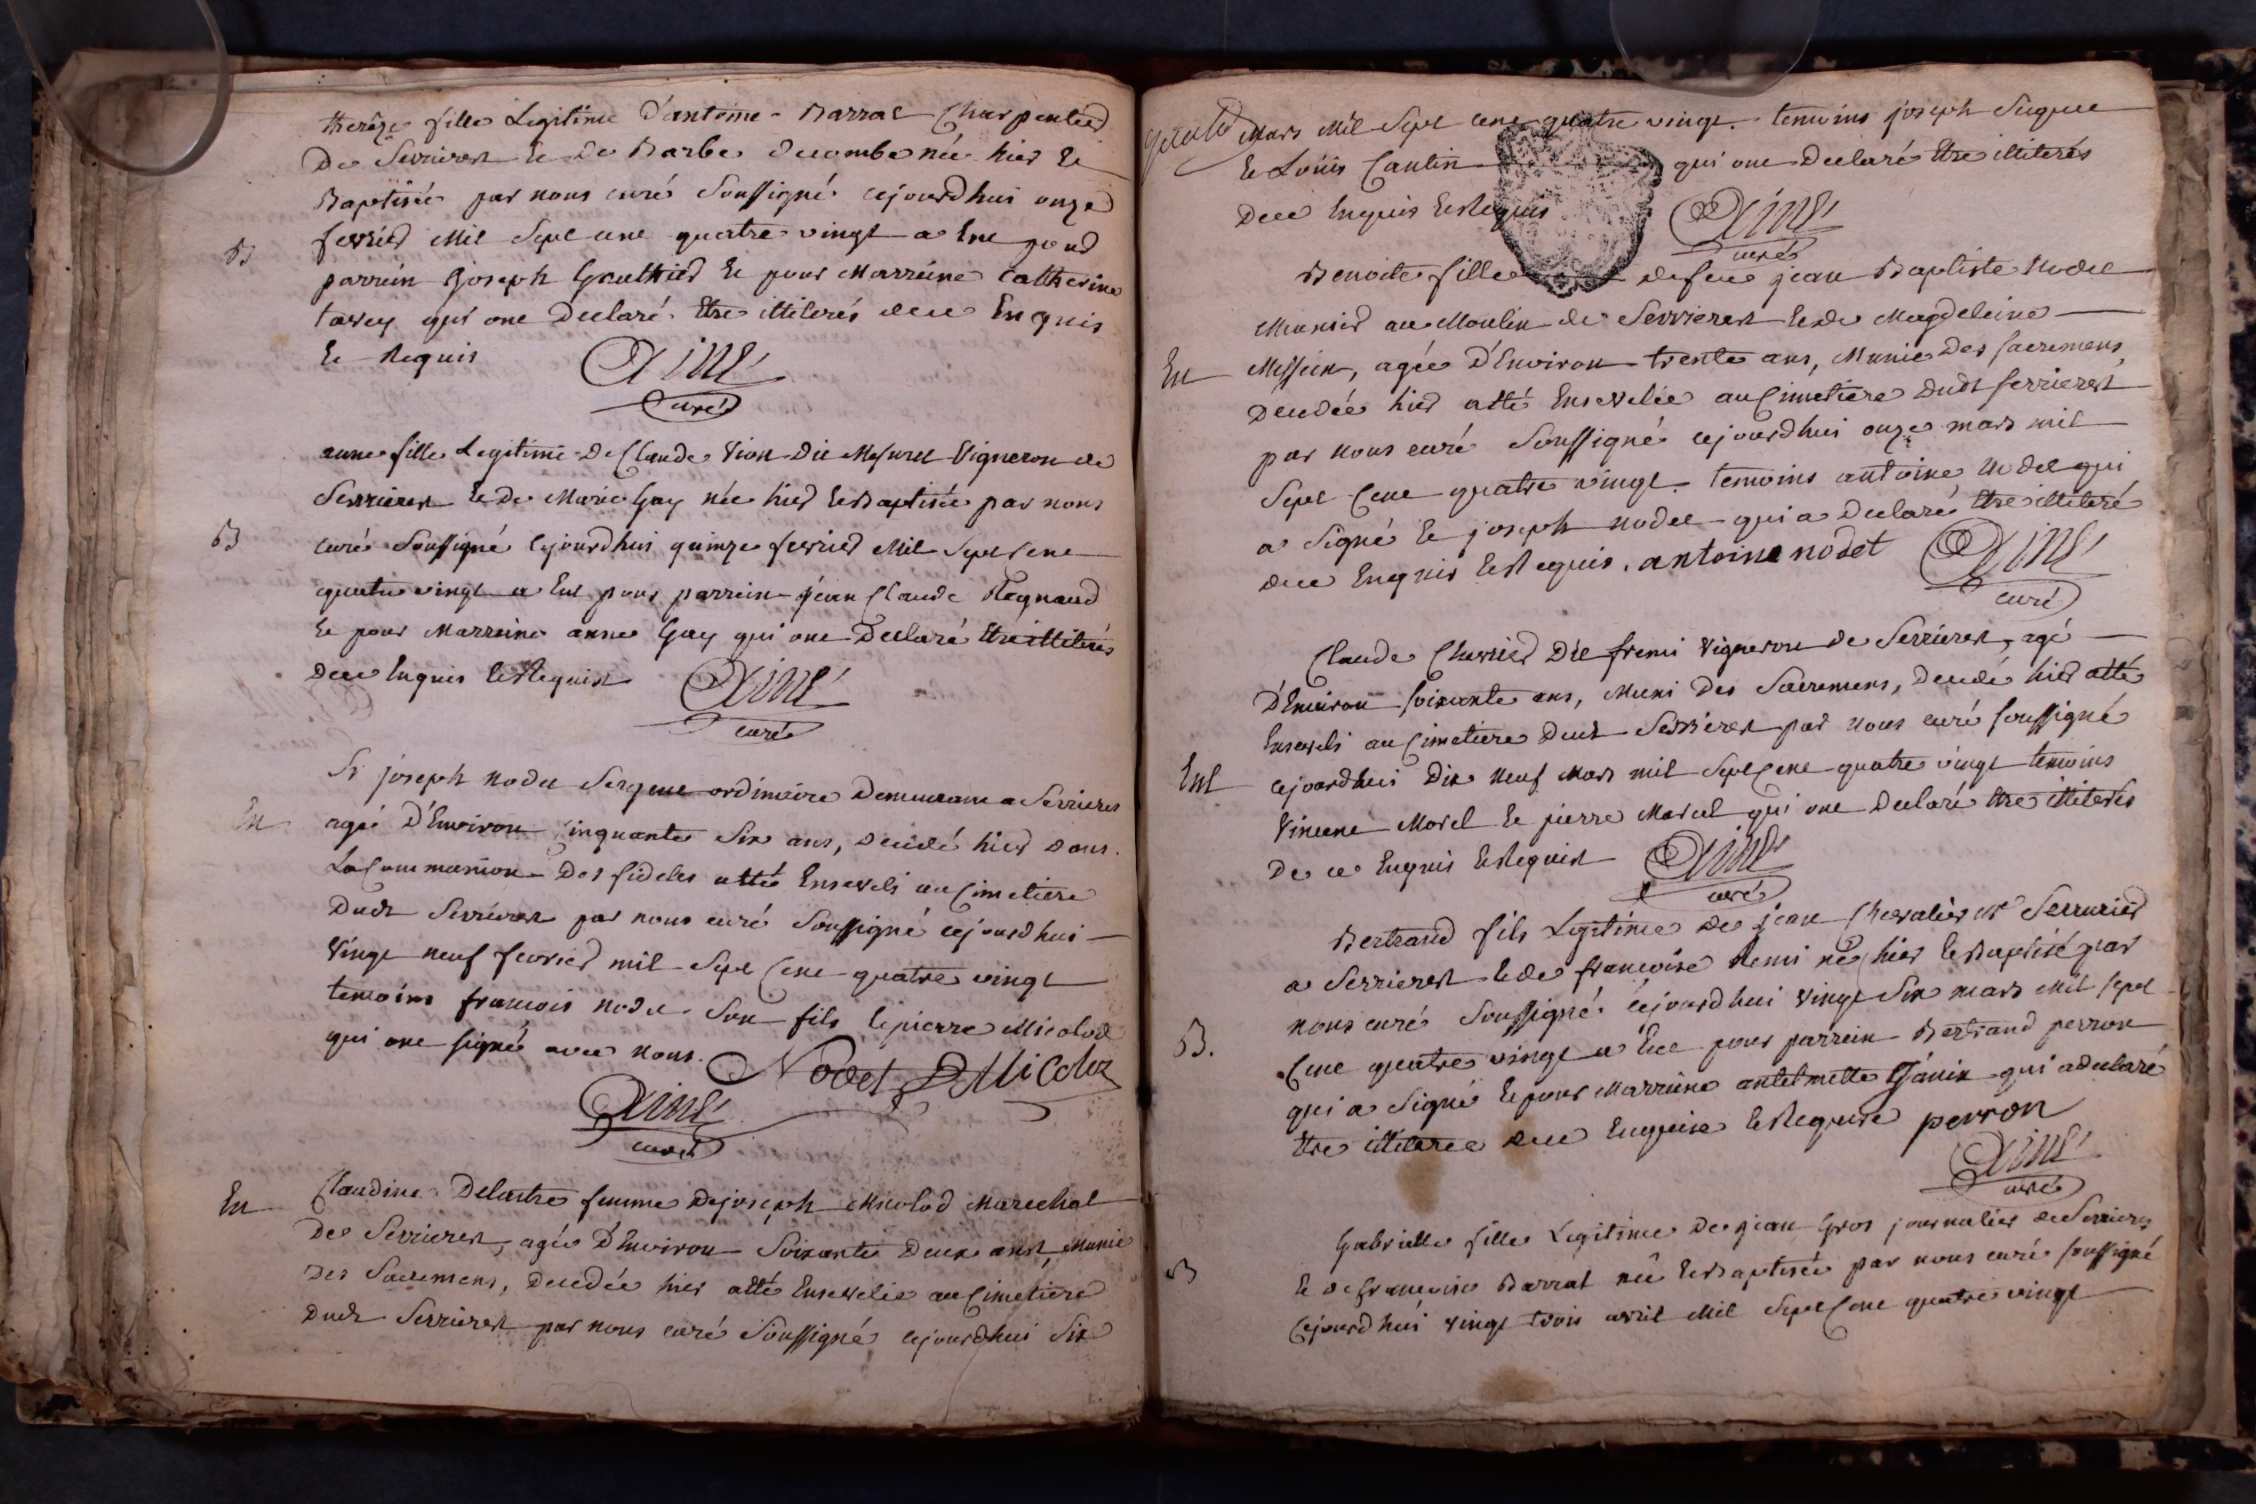 thereze fille Legitime D'antoine Barrat Charpentier
De Serrieres et de Barbe decombe née hier et
Baptisée par nous curé Soussigné cejourdhui onze
B
fevrier Mil Sept cent quatre vingt a eut pour
parrein Joseph Gauthier et pour Marreine Catherine
tavey qui ont Declaré Etre illiterés dece Enquis
Et Requis
Aimé
curé
anne fille Legitime De Claude Vion Dit Mesuret Vigneron de
Serrieres et De Marie Gay née hier et Baptisée par nous
B
curé Soussigné cejourdhui quinze fevrier Mil Sept Cent
quatre vingt a Eut pour parrein jean Claude Regnaud
et pour Marreine anne Gay qui ont Declaré Etre illiterés
Dece Enquis et Requis
Aimé
curé
Sr joseph nodet Sergent ordinaire Demeurant a Serrieres
En
agé D'Environ Cinquante Six ans, Decedé hier dans
La Communion Des fideles atté Enseveli au Cimetiere
Dudt Serrieres par nous curé Soussigné cejourdhui
Vingt neuf fevrier mil Sept Cent quatre vingt
temoins francois nodet Son fils et pierre Micolod
qui ont signé avec nous. Nodet P Micolod
Aimé
curé
En
Claudine Delastre femme Dejoseph Micolod Marechal
De Serrieres, agée D'Environ Soixante Deux ans, Munie
Des Sacremens, Decedée hier atté Ensevelie au Cimetiere
Dudt Serrieres par nous curé Soussigné cejourdhui Six
Mars Mil Sept Cent quatre vingt. temoins joseph
et Loüis Cantin qui ont Declaré Etre illiterés
Dece Enquis et Requis
Aimé
curé
Benoite fille defeu jean Baptiste Nodet
Munier au Moulin de Serrieres et de Magdeleine
En
agée D'Environ trente ans, Munie Des Sacremens,
Decedée hier atté Ensevelie au Cimetiere Dudt Serrieres
par nous curé Soussigné cejourdhui onze mars mil
Sept Cent quatre vingt. temoins antoine Nodet qui
a Signé et joseph nodet qui a Declaré Etre illiteré
dece Enquis et Requis. antoine nodet
Aimé
curé
Claude Chevrier Dit fremi Vigneron de Serrieres, agé
D'Environ Soixante ans, Muni Des Sacremens, Decedé hier atté
Enseveli au Cimetiere Dudt Serrieres par nous curé soussigné
Ent
cejourdhui Dix neuf Mars mil Sept Cent quatre vingt temoins
Vincent Morel et pierre Marcel qui ont Declaré Etre illiterés
De ce Enquis et Requis
Aimé
curé
Bertrand fils Legitime de jean Chevalier Mt Serrurier
a Serrieres et de francoise Remi né hier et Baptisé par
nous curé Soussigné cejourdhui Vingt Six mars Mil Sept
B.
Cent quatre vingt a Eut pour parrein Bertrand perron
qui a Signé et pour Marreine Jânin qui a declaré
Etre illiterée dece Enquise et Requise perron
Aimé
curé
Gabrielle fille Legitime De jean Gros journalier de Serrieres
B
et de francoise Barrat née et Baptisée par nous curé Soussigné
Cejourdhui vingt trois avril Mil Sept Cent quatre vingt